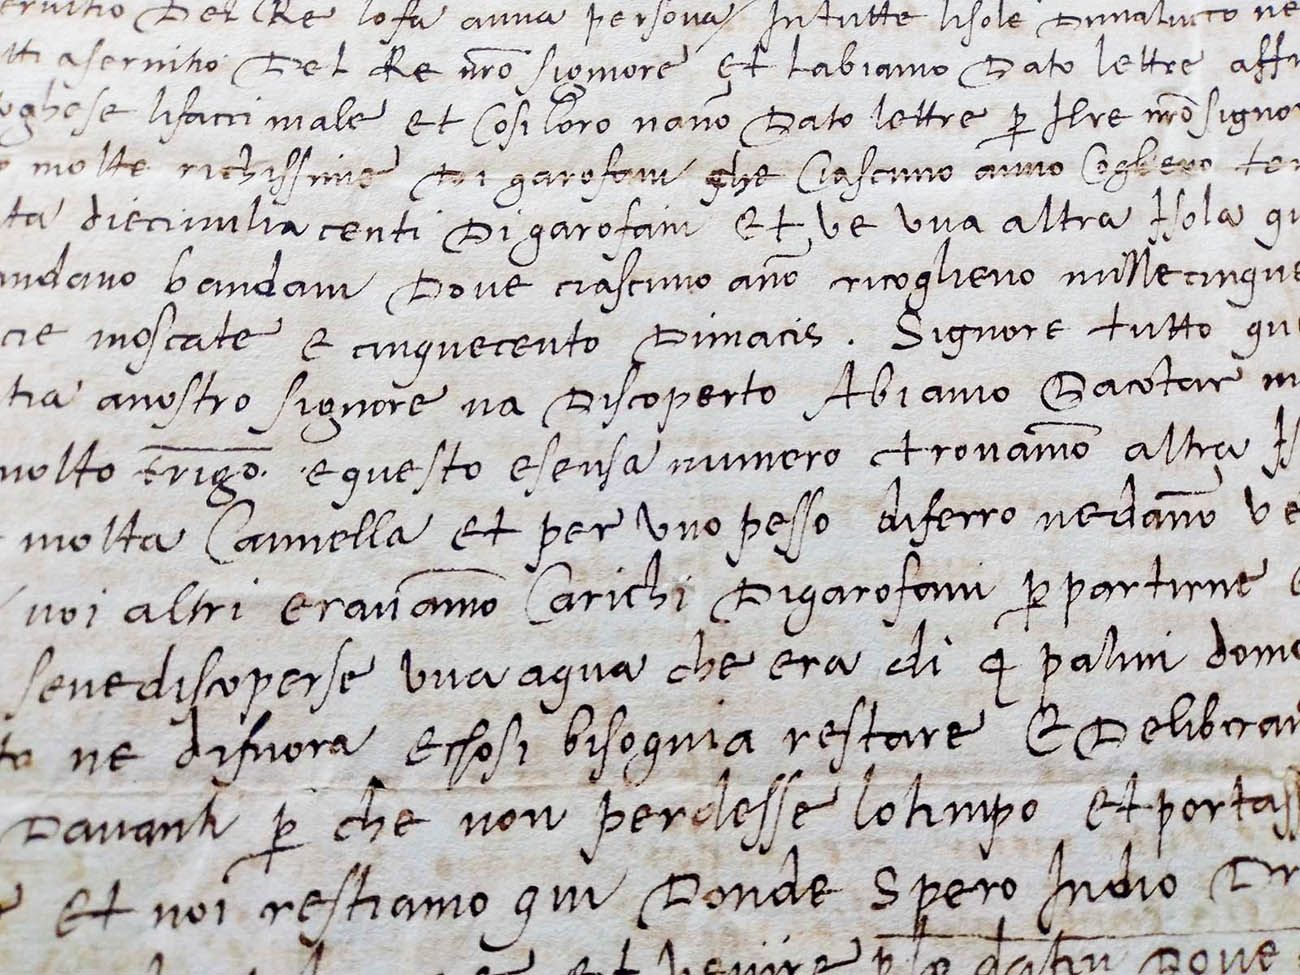 seruitio Del Re losa anna persona In tutte lisole Dimalucco ne
tti aseruitio Del Re nro signiore et labiamo Dato lettre affr
oghese lifacci male et Cosi loro nano Dato lettre p Ilre nro signor
molte richissime Di garofani che Ciascuno anno Coglieno
ta diecimilia centi Di garofani Et ve vna altra Isola qu
andano bandani Doue ciascuno ano ricoglieno millecinque
cie moscate e cinquecento Dimacis . Signore tutto qu
tia anostro signore na Discoperto Abiamo Dacotar m
molto e questo esensa numero trouamo altra Is
molta Cannella et per vno pesso diferro nedano ve
noi altri erauamo Carichi Digarofani p partirne
seuediscoperse vna aqua che era di 4 palmi
to ne difuora Ecchosi bisognia restare E Deliberam
Dauanti p che non perdesse lotimpo et portass
et noi restiamo qui Donde Spero Indio
et venire p Doue